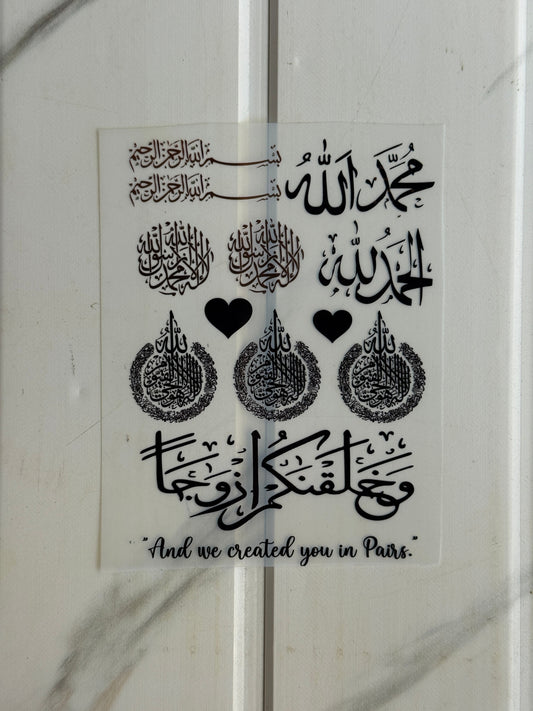 بسم الله الرحمن الرحيم
بسم الله الرحمن الرحيم
محمد الله
لا إله إلا الله محمد رسول الله
لا إله إلا الله محمد رسول الله
الحمد لله
الله
الله
الله
وَخَلَقْنَٰكُمْ أَزْوَٰجًا
"And we created you in Pairs."